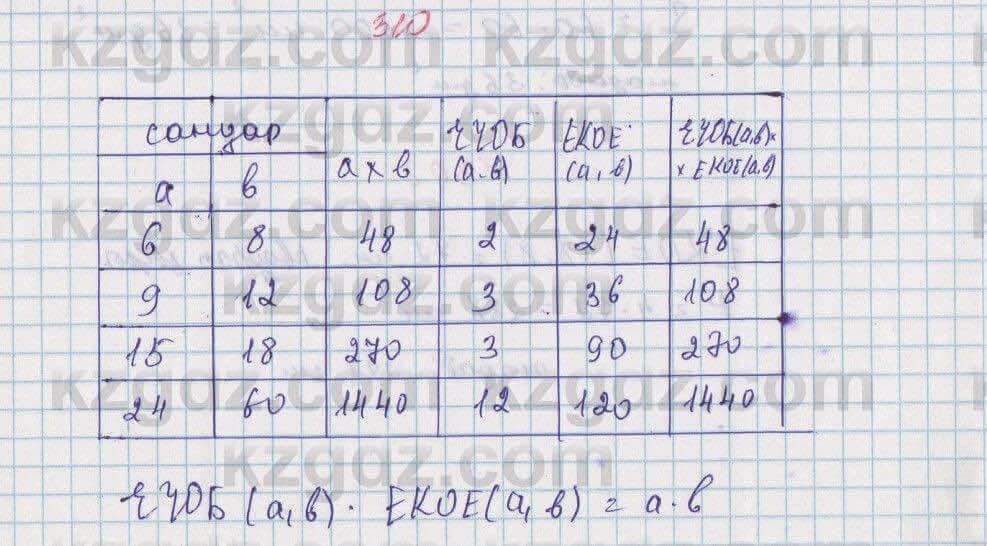 310
сандар
а в а х в ЕЧОБ (а.в) ЕКОЕ (а, в) ЕЧОБ(а,в)× × ЕКОЕ(а,в)
6 8 48 2 24 48
9 12 108 3 36 108
15 18 270 3 90 270
24 60 1440 12 120 1440
ЕЧОБ (а,в) · ЕКОЕ(а, в) = а·в
kzgdz.com